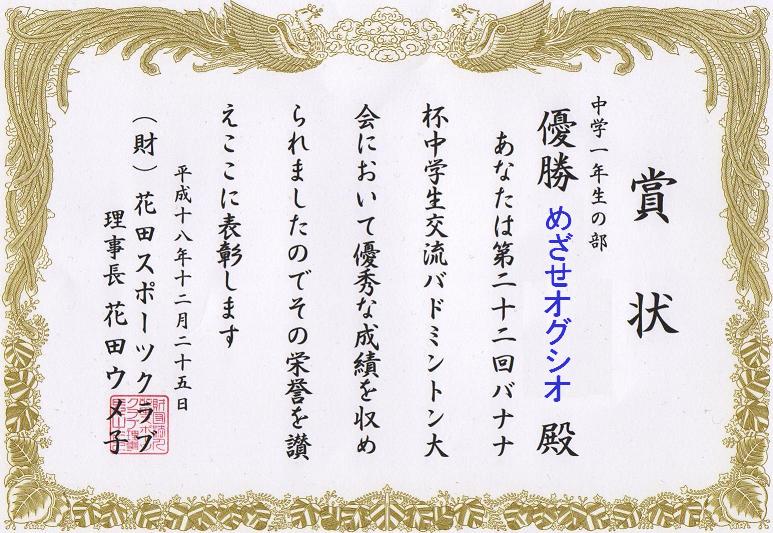 賞状
中学一年生の部
優勝 めざせオグシオ 殿
あなたは第二十二回バナナ
杯中学生交流バドミントン大
会において優秀な成績を収め
られましたのでその栄誉を讃
えここに表彰します
平成十八年十二月二十五日
（財）花田スポーツクラブ
理事長 花田ウメ子